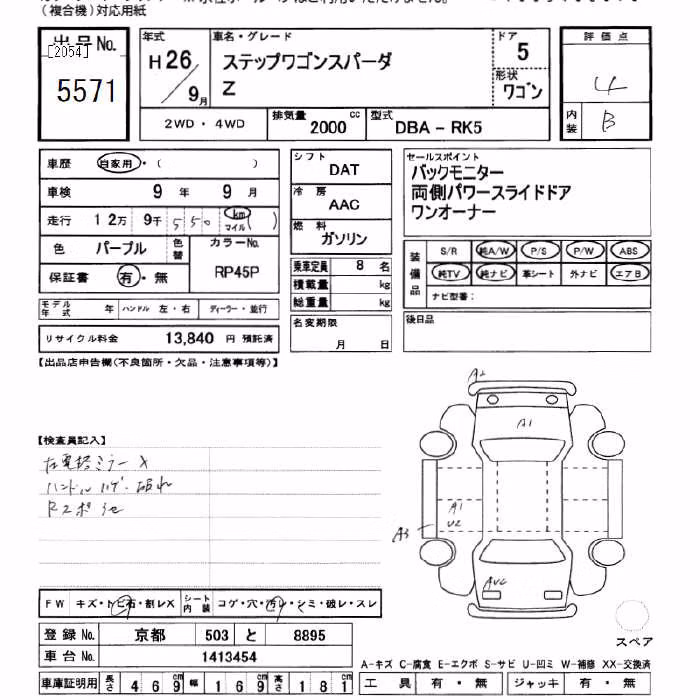 （複合機）対応用紙
出品No.
[2054]
5571
年式
H26/9月
車名・グレード
ステップワゴンスパーダ
Z
ドア
5
形状
ワゴン
評価点
4
内装
B
2WD・4WD
排気量
2000 cc
型式
DBA－RK5
車歴 自家用・（ ）
車検 9 年 9 月
走行 12万 9千 550 km マイル ( )
色 パープル 色替
カラーNo.
RP45P
保証書 有・無
シフト
DAT
冷房
AAC
燃料
ガソリン
乗車定員 8 名
積載量 kg
総重量 kg
セールスポイント
バックモニター
両側パワースライドドア
ワンオーナー
装備品
S/R 純A/W P/S P/W ABS
純TV 純ナビ 革シート 外ナビ エアB
ナビ型番：
モデル年式 年 ハンドル 左・右 ディーラー・並行
リサイクル料金 13,840 円 預託済
名変期限
月 日
後日品
【出品店申告欄(不良箇所・欠品・注意事項等)】
【検査員記入】
A2
A1
A1
U2
A3
FW キズ・トビ石・割レX シート内装 コゲ・穴・汚レ・シミ・破レ・スレ
登録No. 京都 503 と 8895
車台No. 1413454
車庫証明用 長さ 469 幅 169 高さ 181
スペア
A-キズ C-腐食 E-エクボ S-サビ U-凹ミ W-補修 XX-交換済
工具 有・無 ジャッキ 有・無